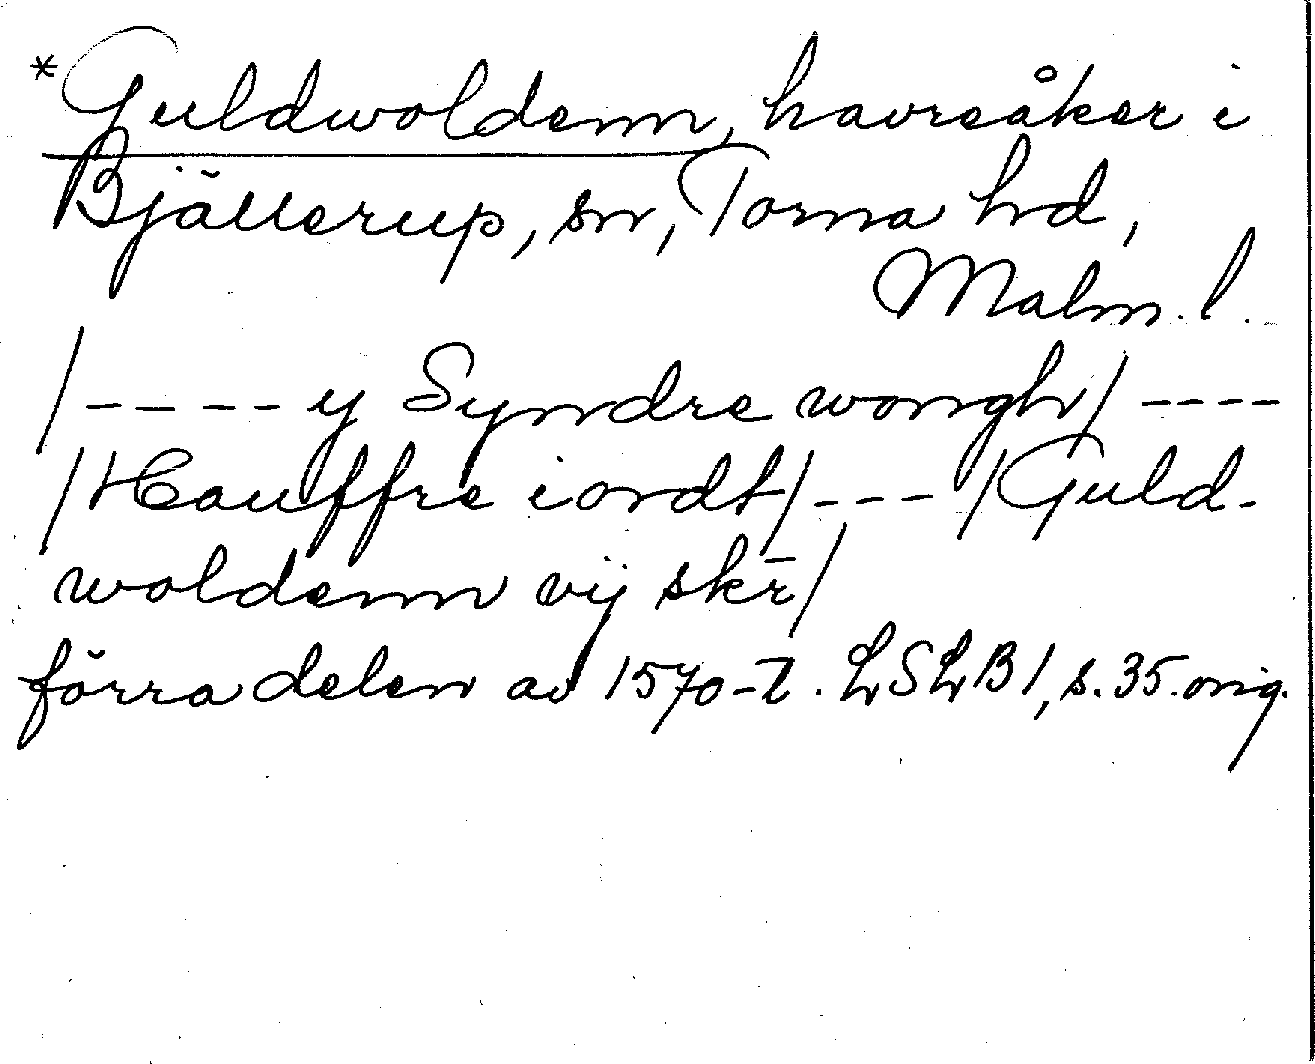 *Guldwoldenn, havreåker i
Bjällerup, sn, Torna hd,
Malm. l.
/---- y Syndre wongh/ ----
/Hauffre iordt/--- /Guld-
woldenn vij skr̄/
förra delen av 1570-t. LSLB1, s. 35. orig.